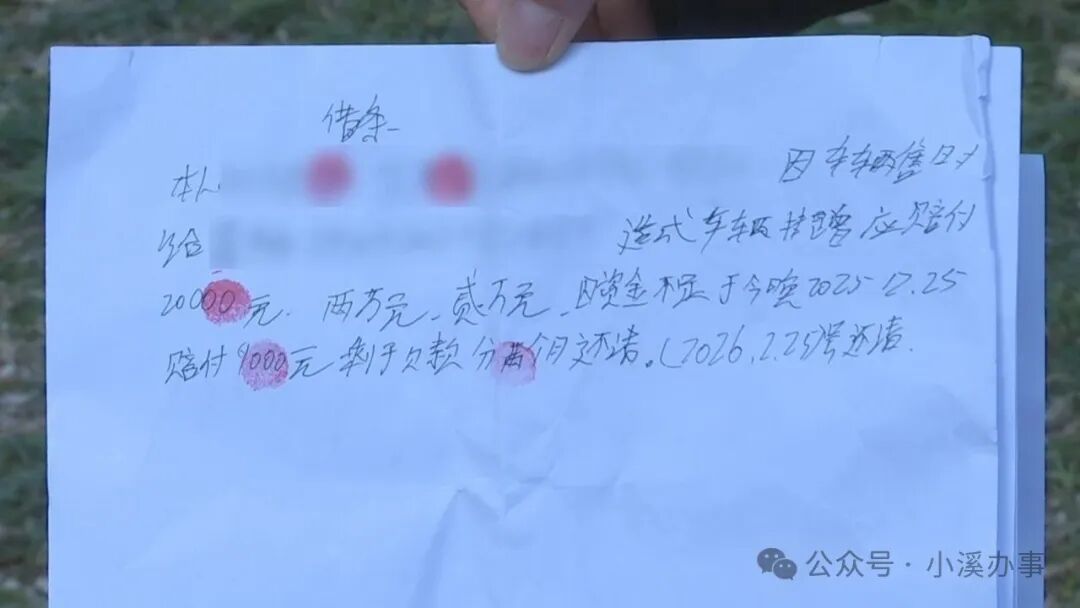 借条
本人 因车辆售
给 造成车辆 应赔付
20000元. 两万元、贰万元、因资金不足于今晚2025.12.25
赔付 000元剩于欠款分 个月还清。(2026.2.25号还清.
公众号·小溪办事